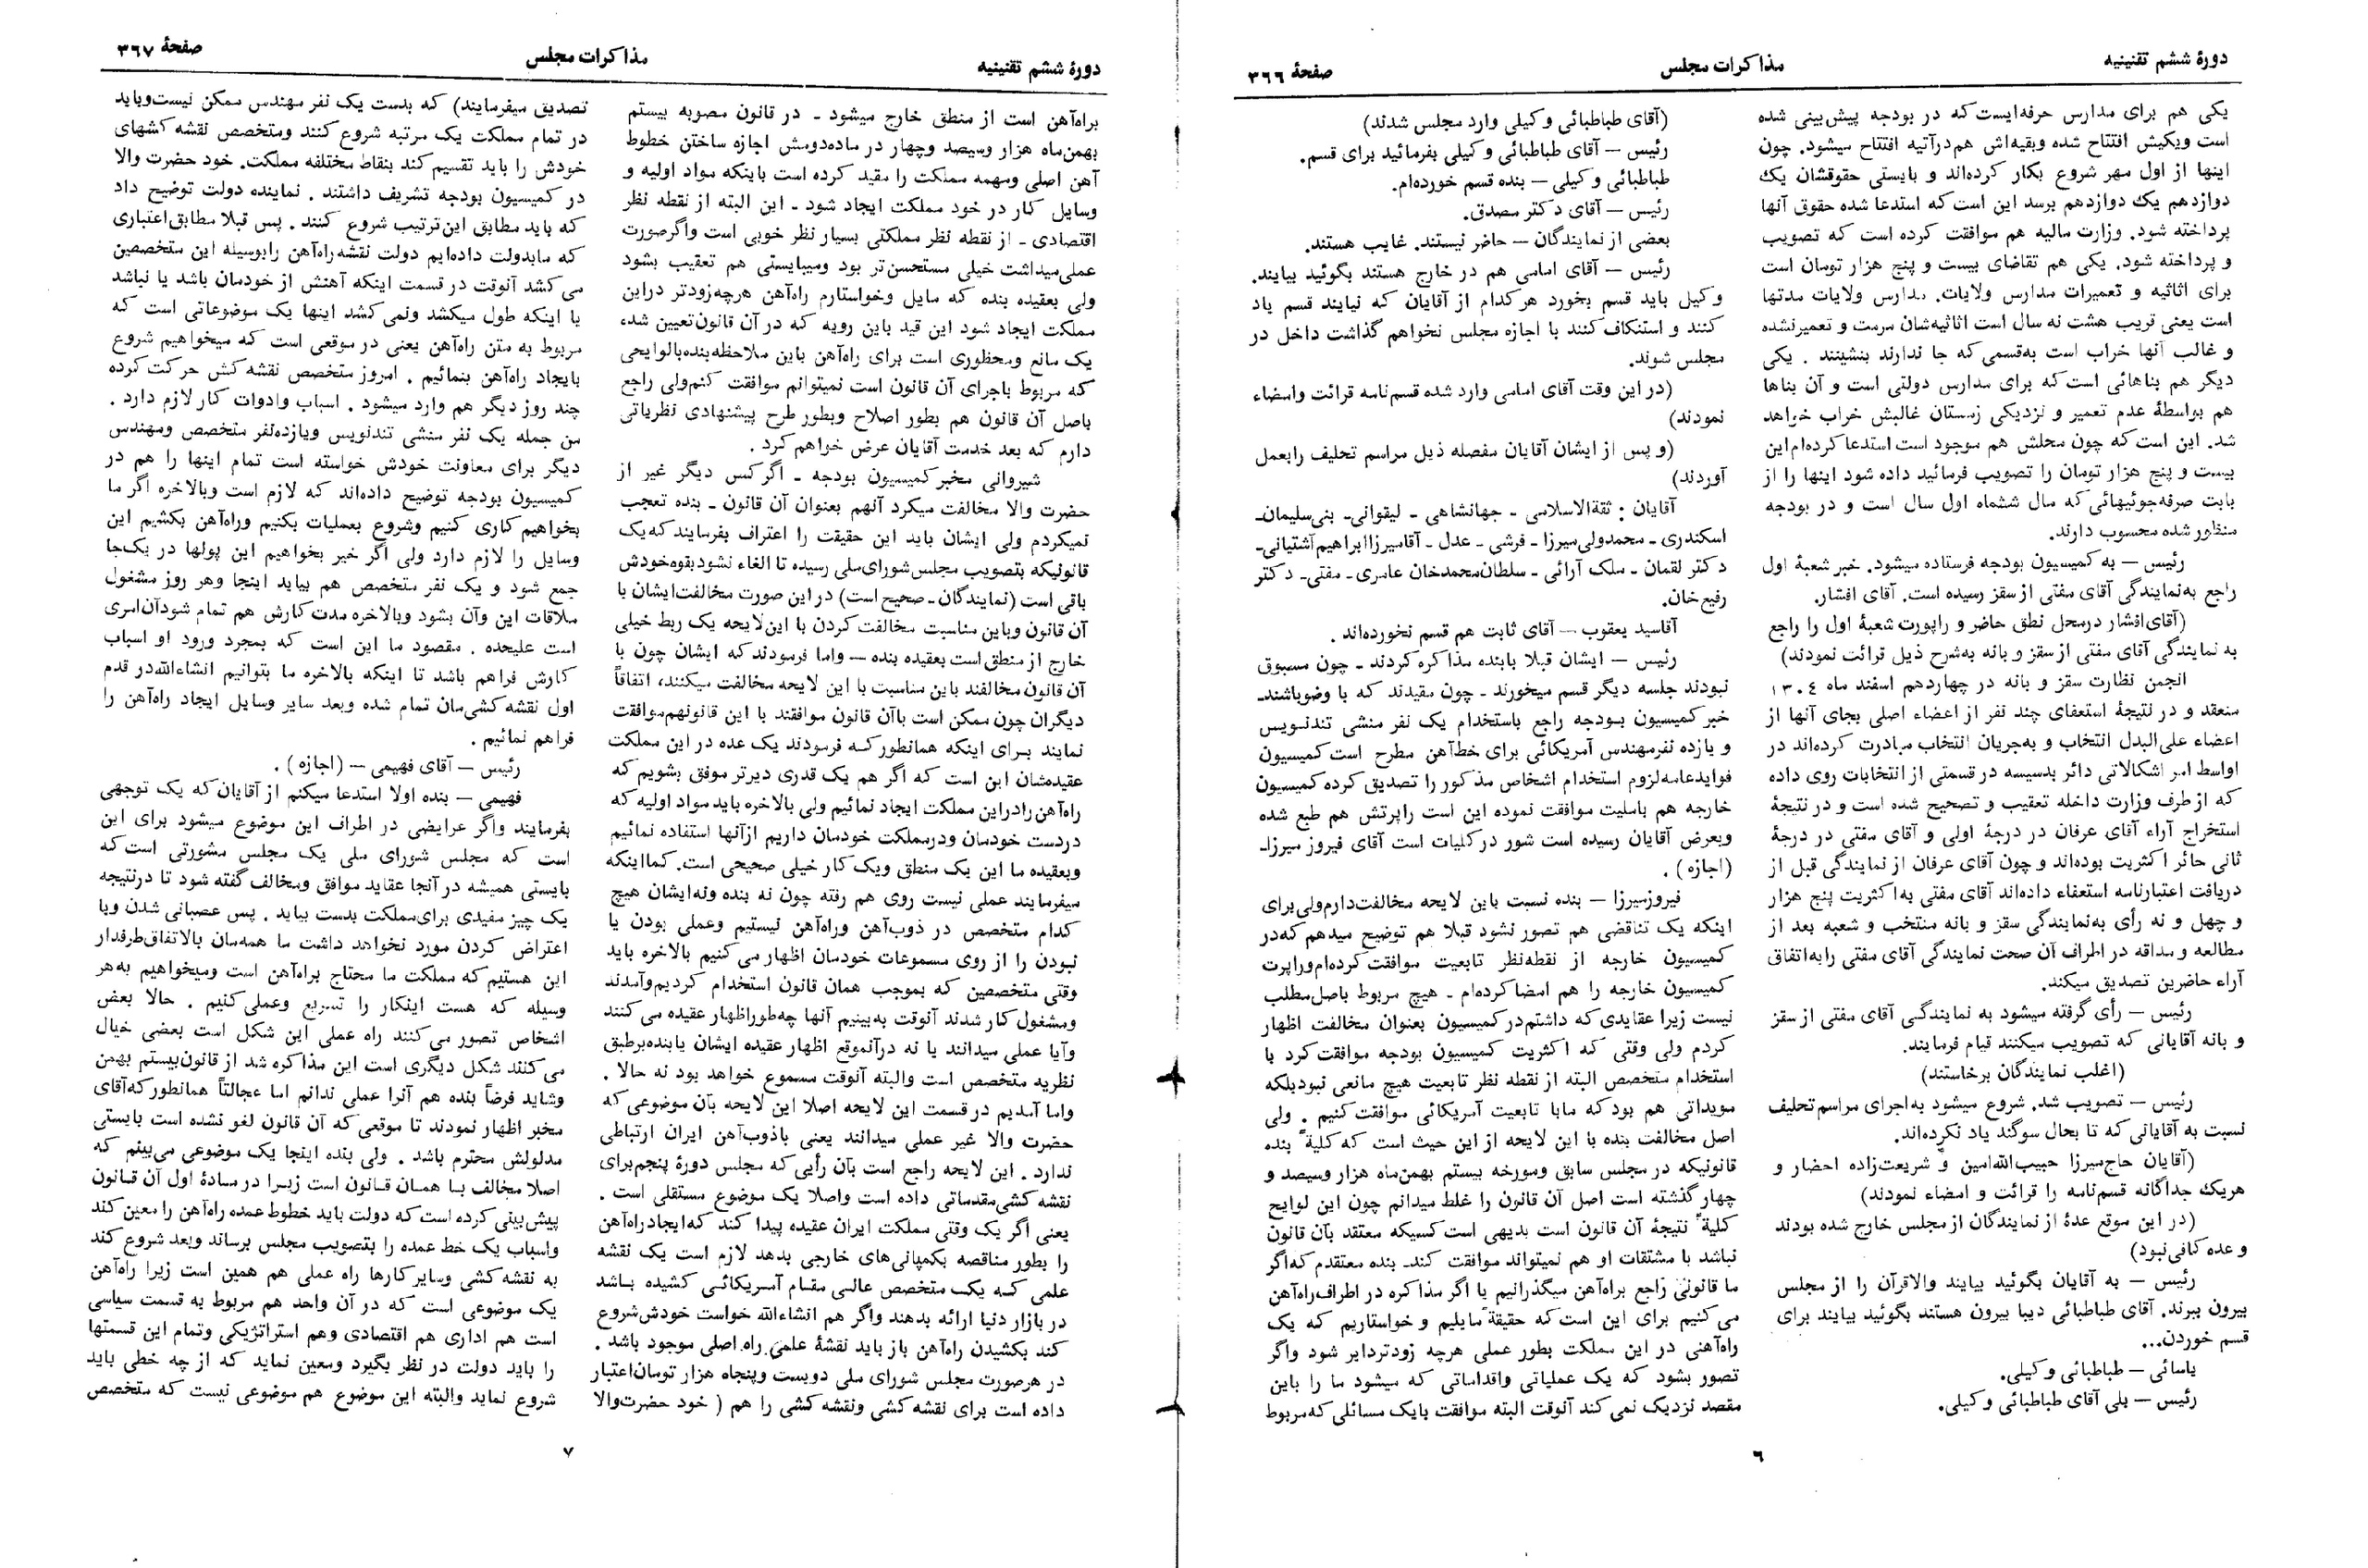 دورهٔ ششم تقنینیه
مذاکرات مجلس
صفحهٔ ۳۶۶
یکی هم برای مدارس حرفه‌ایست که در بودجه پیش‌بینی شده
است ویکیش افتتاح شده وبقیه‌اش هم درآتیه افتتاح میشود. چون
اینها از اول مهر شروع بکار کرده‌اند و بایستی حقوقشان یك
دوازدهم یك دوازدهم برسد این است که استدعا شده حقوق آنها
پرداخته شود. وزارت مالیه هم موافقت کرده است که تصویب
و پرداخته شود. یکی هم تقاضای بیست و پنج هزار تومان است
برای اثاثیه و تعمیرات مدارس ولایات. مدارس ولایات مدتها
است یعنی قریب هشت نه سال است اثاثیه‌شان مرمت و تعمیرنشده
و غالب آنها خراب است به‌قسمی که جا ندارند بنشینند . یکی
دیگر هم بناهائی است که برای مدارس دولتی است و آن بناها
هم بواسطهٔ عدم تعمیر و نزدیکی زمستان غالبش خراب خواهد
شد. این است که چون محلش هم موجود است استدعا کرده‌ام این
بیست و پنج هزار تومان را تصویب فرمائید داده شود اینها را از
بابت صرفه‌جوئیهائی که مال ششماه اول سال است و در بودجه
منظور شده محسوب دارند.
رئیس — به کمیسیون بودجه فرستاده میشود. خبر شعبهٔ اول
راجع به‌نمایندگی آقای مفتی از سقز رسیده است. آقای افشار.
(آقای افشار درمحل نطق حاضر و راپورت شعبهٔ اول را راجع
به نمایندگی آقای مفتی از سقز و بانه به‌شرح ذیل قرائت نمودند)
انجمن نظارت سقز و بانه در چهاردهم اسفند ماه ۱۳۰۴
منعقد و در نتیجهٔ استعفای چند نفر از اعضاء اصلی بجای آنها از
اعضاء علی‌البدل انتخاب و به‌جریان انتخاب مبادرت کرده‌اند در
اواسط امر اشکالاتی دائر بدسیسه در قسمتی از انتخابات روی داده
که از طرف وزارت داخله تعقیب و تصحیح شده است و در نتیجهٔ
استخراج آراء آقای عرفان در درجهٔ اولی و آقای مفتی در درجهٔ
ثانی حائز اکثریت بوده‌اند و چون آقای عرفان از نمایندگی قبل از
دریافت اعتبارنامه استعفاء داده‌اند آقای مفتی به‌اکثریت پنج هزار
و چهل و نه رأی به‌نمایندگی سقز و بانه منتخب و شعبه بعد از
مطالعه و مداقه در اطراف آن صحت نمایندگی آقای مفتی رابه‌اتفاق
آراء حاضرین تصدیق میکند.
رئیس — رأی گرفته میشود به نمایندگی آقای مفتی از سقز
و بانه آقایانی که تصویب میکنند قیام فرمایند.
(اغلب نمایندگان برخاستند)
رئیس — تصویب شد. شروع میشود به‌اجرای مراسم تحلیف
نسبت به آقایانی که تا بحال سوگند یاد نکرده‌اند.
(آقایان حاج‌میرزا حبیب‌الله‌امین و شریعت‌زاده احضار و
هریك جداگانه قسم‌نامه را قرائت و امضاء نمودند)
(در این موقع عدهٔ از نمایندگان از مجلس خارج شده بودند
و عده کافی نبود)
رئیس — به آقایان بگوئید بیایند والاقرآن را از مجلس
بیرون ببرند. آقای طباطبائی دیبا بیرون هستند بگوئید بیایند برای
قسم خوردن...
یاسائی — طباطبائی وکیلی.
رئیس — بلی آقای طباطبائی وکیلی.
(آقای طباطبائی وکیلی وارد مجلس شدند)
رئیس — آقای طباطبائی وکیلی بفرمائید برای قسم.
طباطبائی وکیلی — بنده قسم خورده‌ام.
رئیس — آقای دکتر مصدق.
بعضی از نمایندگان — حاضر نیستند. غایب هستند.
رئیس — آقای امامی هم در خارج هستند بگوئید بیایند.
وکیل باید قسم بخورد هرکدام از آقایان که نیایند قسم یاد
کنند و استنکاف کنند با اجازه مجلس نخواهم گذاشت داخل در
مجلس شوند.
(در این وقت آقای امامی وارد شده قسم‌نامه قرائت وامضاء
نمودند)
(و پس از ایشان آقایان مفصله ذیل مراسم تحلیف رابعمل
آوردند)
آقایان : ثقةالاسلامی ـ جهانشاهی ـ لیقوانی ـ بنی‌سلیمان ـ
اسکندری ـ محمدولی‌میرزا ـ فرشی ـ عدل ـ آقامیرزاابراهیم‌آشتیانی ـ
دکتر لقمان ـ ملک آرائی ـ سلطان‌محمدخان عامری ـ مفتی ـ دکتر
رفیع‌خان.
آقاسید یعقوب — آقای ثابت هم قسم نخورده‌اند .
رئیس — ایشان قبلا بابنده مذاکره کردند ـ چون مسبوق
نبودند جلسه دیگر قسم میخورند ـ چون مقیدند که با وضوباشند ـ
خبر کمیسیون بودجه راجع باستخدام یک نفر منشی تندنویس
و یازده نفرمهندس آمریکائی برای خط‌آهن مطرح است کمیسیون
فوایدعامه‌لزوم استخدام اشخاص مذکور را تصدیق کرده کمیسیون
خارجه هم باملیت موافقت نموده این است راپرتش هم طبع شده
وبعرض آقایان رسیده است شور در کلیات است آقای فیروز میرزا ـ
(اجازه) .
فیروزمیرزا — بنده نسبت باین لایحه مخالفت‌دارم‌ولی‌برای
اینکه یک تناقضی هم تصور نشود قبلا هم توضیح میدهم که‌در
کمیسیون خارجه از نقطه‌نظر تابعیت موافقت کرده‌ام‌وراپرت
کمیسیون خارجه را هم امضاکرده‌ام ـ هیچ مربوط باصل‌مطلب
نیست زیرا عقایدی که داشتم‌درکمیسیون بعنوان مخالفت اظهار
کردم ولی وقتی که اکثریت کمیسیون بودجه موافقت‌کرد با
استخدام متخصص البته از نقطه نظر تابعیت هیچ مانعی نبودبلکه
مویداتی هم بود که مابا تابعیت آمریکائی موافقت کنیم . ولی
اصل مخالفت بنده با این لایحه از این حیث است که کلیةً بنده
قانونیکه در مجلس سابق ومورخه بیستم بهمن‌ماه هزار وسیصد و
چهار گذشته است اصل آن قانون را غلط میدانم چون این لوایح
کلیةً نتیجهٔ آن قانون است بدیهی است کسیکه معتقد بآن قانون
نباشد با مشتقات او هم نمیتواند موافقت کند ـ بنده معتقدم که‌اگر
ما قانونی راجع براه‌آهن میگذرانیم یا اگر مذاکره در اطراف‌راه‌آهن
می کنیم برای این است که حقیقةً مایلیم و خواستاریم که یک
راه‌آهنی در این مملکت بطور عملی هرچه زودتردایر شود واگر
تصور بشود که یک عملیاتی واقداماتی که میشود ما را باین
مقصد نزدیک نمی کند آنوقت البته موافقت بایک مسائلی که‌مربوط
۶
دورهٔ ششم تقنینیه
مذاکرات مجلس
صفحهٔ ۳۶۷
براه‌آهن است از منطق خارج میشود ـ در قانون مصوبه بیستم
بهمن‌ماه هزار وسیصد وچهار در ماده‌دومش اجازه ساختن خطوط
آهن اصلی ومهمه مملکت را مقید کرده است باینکه مواد اولیه و
وسایل کار در خود مملکت ایجاد شود ـ این البته از نقطه نظر
اقتصادی ـ از نقطه نظر مملکتی بسیار نظر خوبی است واگرصورت
عملی‌میداشت خیلی مستحسن‌تر بود ومیبایستی هم تعقیب بشود
ولی بعقیده بنده که مایل وخواستارم راه‌آهن هرچه‌زودتر دراین
مملکت ایجاد شود این قید باین رویه که در آن قانون‌تعیین شده
یک مانع ومحظوری است برای راه‌آهن باین ملاحظه‌بنده‌بالوایحی
که مربوط باجرای آن قانون است نمیتوانم موافقت کنم‌ولی راجع
باصل آن قانون هم بطور اصلاح وبطور طرح پیشنهادی نظریاتی
دارم که بعد خدمت آقایان عرض خواهم کرد .
شیروانی مخبر کمیسیون بودجه ـ اگر کس دیگر غیر از
حضرت والا مخالفت میکرد آنهم بعنوان آن قانون ـ بنده تعجب
نمیکردم ولی ایشان باید این حقیقت را اعتراف بفرمایند که یک
قانونیکه بتصویب مجلس شورای‌ملی رسیده تا الغاء نشودبقوه‌خودش
باقی است (نمایندگان ـ صحیح است) در این صورت مخالفت‌ایشان با
آن قانون وباین مناسبت مخالفت کردن با این‌لایحه یک ربط خیلی
خارج از منطق است بعقیده بنده — واما فرمودند که ایشان چون با
آن قانون مخالفند باین مناسبت با این لایحه مخالفت میکنند، اتفاقاً
دیگران چون ممکن است باآن قانون موافقند با این قانونهم‌موافقت
نمایند برای اینکه همانطورکه فرمودند یک عده در این مملکت
عقیده‌شان این است که اگر هم یک قدری دیرتر موفق بشویم که
راه‌آهن‌رادراین مملکت ایجاد نمائیم ولی بالاخره باید مواد اولیه که
دردست خودمان ودرمملکت خودمان داریم ازآنها استفاده نمائیم
وبعقیده ما این یک منطق ویک کار خیلی صحیحی است. کمااینکه
میفرمایند عملی نیست روی هم رفته چون نه بنده ونه‌ایشان هیچ
کدام متخصص در ذوب‌آهن وراه‌آهن نیستیم وعملی بودن یا
نبودن را از روی مسموعات خودمان اظهار می کنیم بالاخره باید
وقتی متخصصین که بموجب همان قانون استخدام کردیم‌وآمدند
ومشغول کار شدند آنوقت به‌بینیم آنها چه‌طوراظهار عقیده می کنند
وآیا عملی میدانند یا نه درآنموقع اظهار عقیده ایشان یابنده‌برطبق
نظریه متخصص است والبته آنوقت مسموع خواهد بود نه حالا .
واما آمدیم در قسمت این لایحه اصلا این لایحه بآن موضوعی که
حضرت والا غیر عملی میدانند یعنی باذوب‌آهن ایران ارتباطی
ندارد . این لایحه راجع است بآن رأیی که مجلس دورهٔ پنجم‌برای
نقشه کشی‌مقدماتی داده است واصلا یک موضوع مستقلی است .
یعنی اگر یک وقتی مملکت ایران عقیده پیدا کند که‌ایجادراه‌آهن
را بطور مناقصه بکمپانی‌های خارجی بدهد لازم است یک نقشه
علمی که یک متخصص عالی مقام آمریکائی کشیده باشد
در بازار دنیا ارائه بدهند واگر هم انشاءالله خواست خودش‌شروع
کند بکشیدن راه‌آهن باز باید نقشهٔ علمی راه اصلی موجود باشد .
در هرصورت مجلس شورای ملی دویست وپنجاه هزار تومان‌اعتبار
داده است برای نقشه کشی ونقشه کشی را هم ( خود حضرت‌والا
تصدیق میفرمایند) که بدست یک نفر مهندس ممکن نیست‌وباید
در تمام مملکت یک مرتبه شروع کنند ومتخصص نقشه کشهای
خودش را باید تقسیم کند بنقاط مختلفه مملکت. خود حضرت والا
در کمیسیون بودجه تشریف داشتند . نماینده دولت توضیح داد
که باید مطابق این‌ترتیب شروع کنند . پس قبلا مطابق‌اعتباری
که مابدولت داده‌ایم دولت نقشه‌راه‌آهن رابوسیله این متخصصین
می کشد آنوقت در قسمت اینکه آهنش از خودمان باشد یا نباشد
یا اینکه طول میکشد ونمی کشد اینها یک موضوعاتی است که
مربوط به متن راه‌آهن یعنی در موقعی است که میخواهیم شروع
بایجاد راه‌آهن بنمائیم . امروز متخصص نقشه کش حرکت کرده
چند روز دیگر هم وارد میشود . اسباب وادوات کار لازم دارد .
من جمله یک نفر منشی تندنویس ویازده‌نفر متخصص ومهندس
دیگر برای معاونت خودش خواسته است تمام اینها را هم در
کمیسیون بودجه توضیح داده‌اند که لازم است وبالاخره اگر ما
بخواهیم کاری کنیم وشروع بعملیات بکنیم وراه‌آهن بکشیم این
وسایل را لازم دارد ولی اگر خیر بخواهیم این پولها در یک‌جا
جمع شود و یک نفر متخصص هم بیاید اینجا وهر روز مشغول
ملاقات این وآن بشود وبالاخره مدت کارش هم تمام شودآن‌امری
است علیحده . مقصود ما این است که بمجرد ورود او اسباب
کارش فراهم باشد تا اینکه بالاخره ما بتوانیم انشاءالله‌در قدم
اول نقشه کشی‌مان تمام شده وبعد سایر وسایل ایجاد راه‌آهن را
فراهم نمائیم .
رئیس — آقای فهیمی — (اجازه ) .
فهیمی — بنده اولا استدعا میکنم از آقایان که یک توجهی
بفرمایند واگر عرایضی در اطراف این موضوع میشود برای این
است که مجلس شورای ملی یک مجلس مشورتی است که
بایستی همیشه در آنجا عقاید موافق ومخالف گفته شود تا درنتیجه
یک چیز مفیدی برای‌مملکت بدست بیاید . پس عصبانی شدن ویا
اعتراض کردن مورد نخواهد داشت ما همه‌مان بالاتفاق‌طرفدار
این هستیم که مملکت ما محتاج براه‌آهن است ومیخواهیم به‌هر
وسیله که هست اینکار را تسریع وعملی کنیم . حالا بعض
اشخاص تصور می کنند راه عملی این شکل است بعضی خیال
می کنند شکل دیگری است این مذاکره شد از قانون بیستم بهمن
وشاید فرضاً بنده هم آنرا عملی ندانم اما عجالتاً همانطور که‌آقای
مخبر اظهار نمودند تا موقعی که آن قانون لغو نشده است بایستی
مدلولش محترم باشد . ولی بنده اینجا یک موضوعی می‌بینم که
اصلا مخالف با همان قانون است زیرا در مادهٔ اول آن قانون
پیش‌بینی کرده است که دولت باید خطوط عمده راه‌آهن را معین کند
واسباب یک خط عمده را بتصویب مجلس برساند وبعد شروع کند
به نقشه کشی وسایر کارها راه عملی هم همین است زیرا راه‌آهن
یک موضوعی است که در آن واحد هم مربوط به قسمت سیاسی
است هم اداری هم اقتصادی وهم استراتژیکی وتمام این قسمتها
را باید دولت در نظر بگیرد ومعین نماید که از چه خطی باید
شروع نماید والبته این موضوع هم موضوعی نیست که متخصص
۷